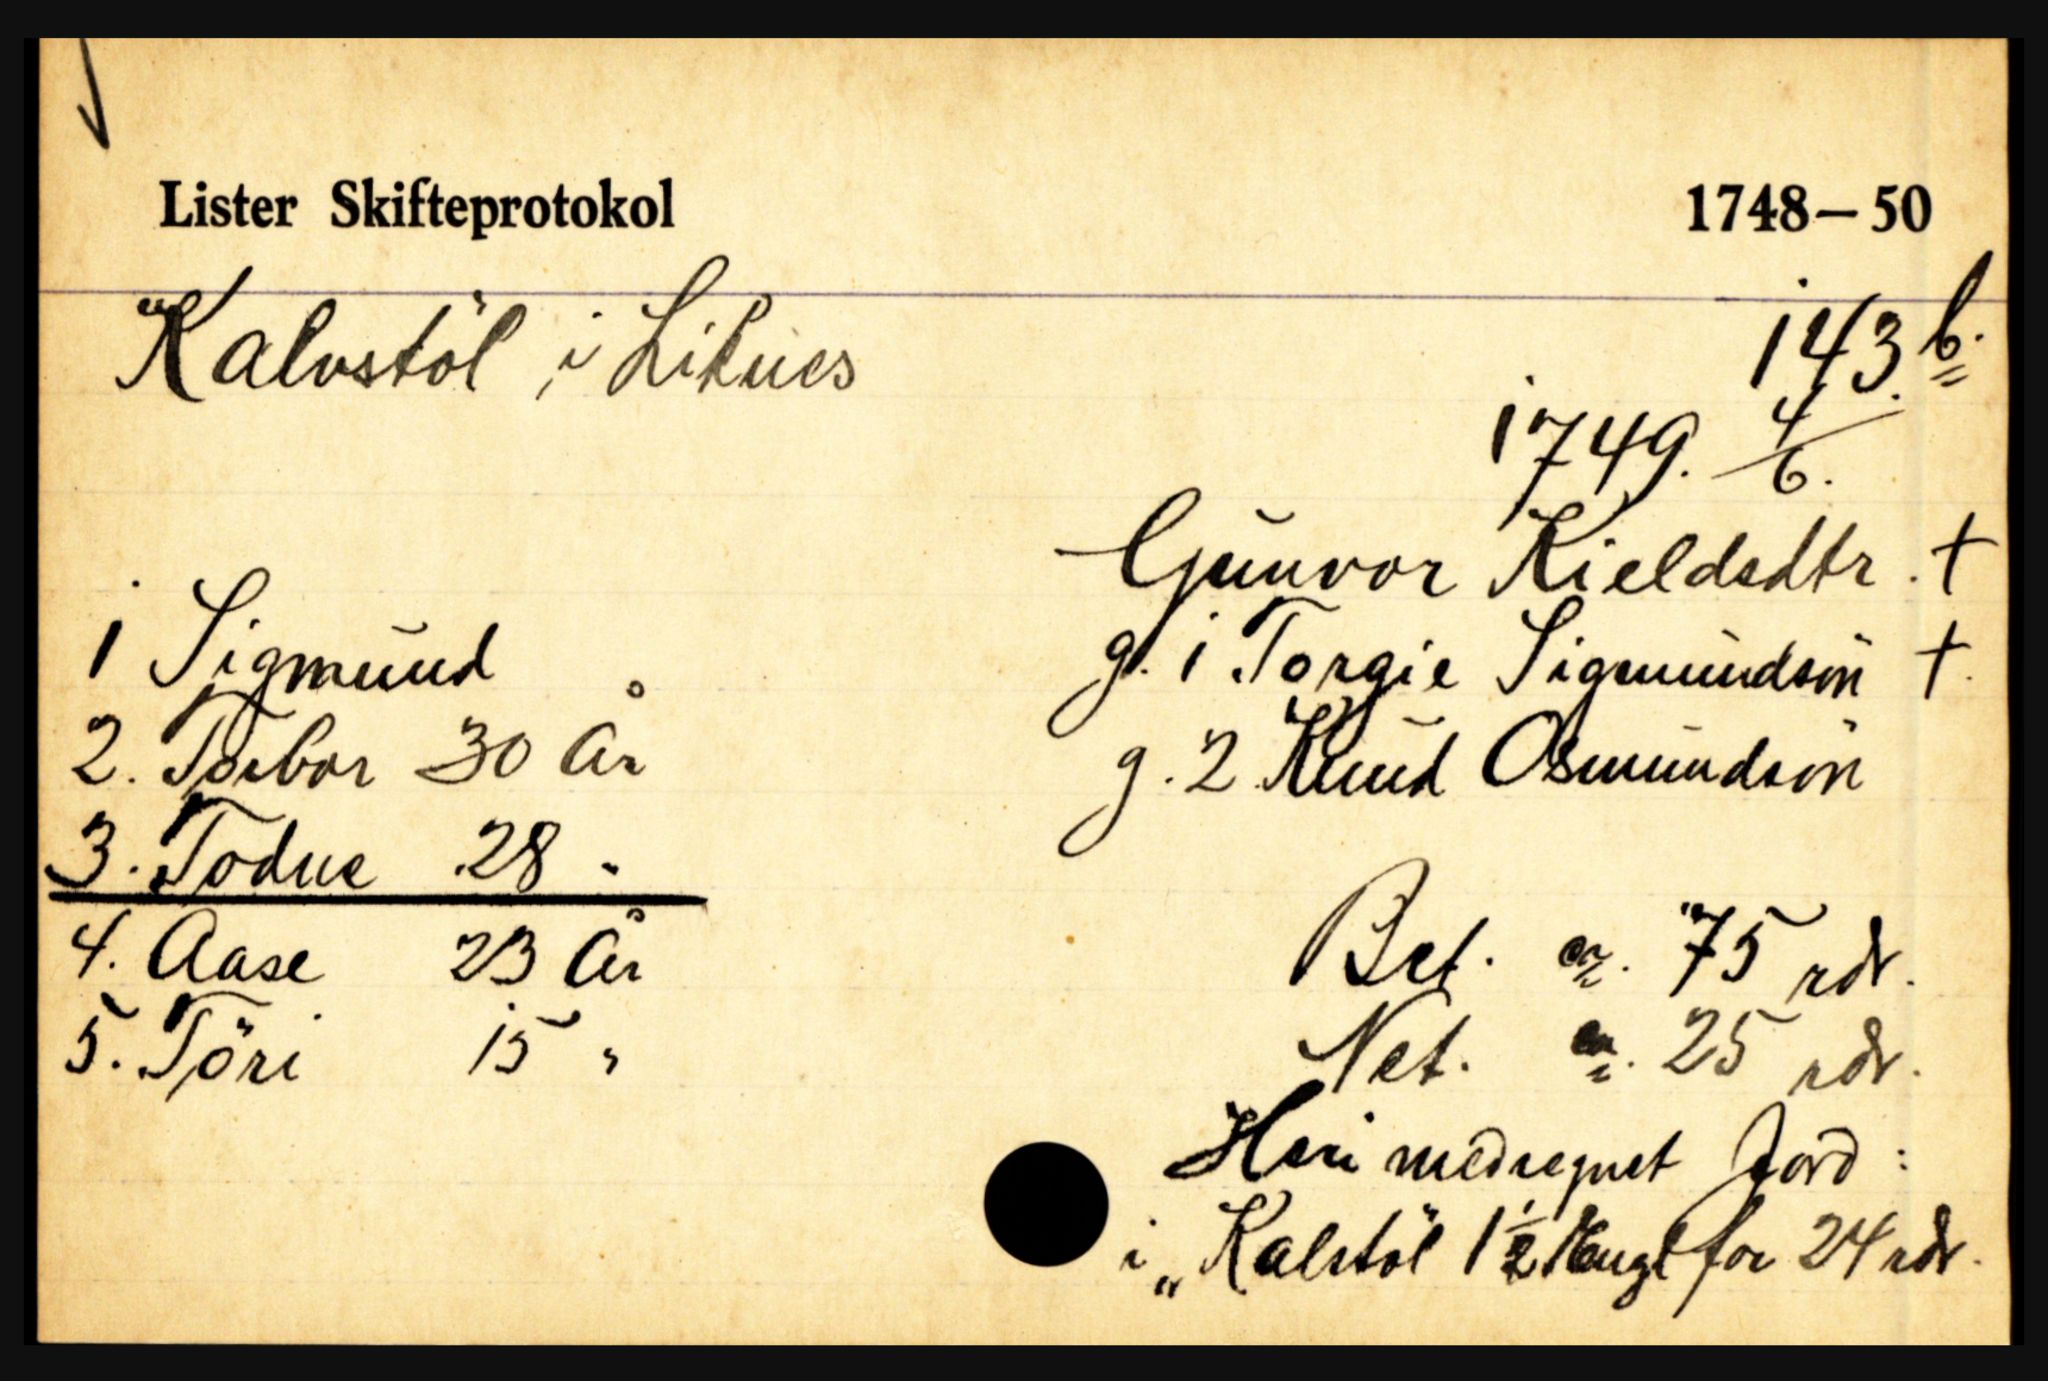 Lister Skifteprotokol 1748-50
Kalvstöl i Liknes 143 b.
1749. 4/6.
Gunvor Kieldsdtr. +
g. 1 Torgie Sigmundsön +.
g. 2 Knud Osmundsön
1 Sigmund
2. Torbor 30 År
3. Todne 28 "
4. Aase 23 År
5. Töri 15 "
Bet. ca. 75 rdr.
Net. ca. 25 rdr.
Heri medregnet Jord:
i „Kalstöl 1 1/2 Engl for 24 rdr.